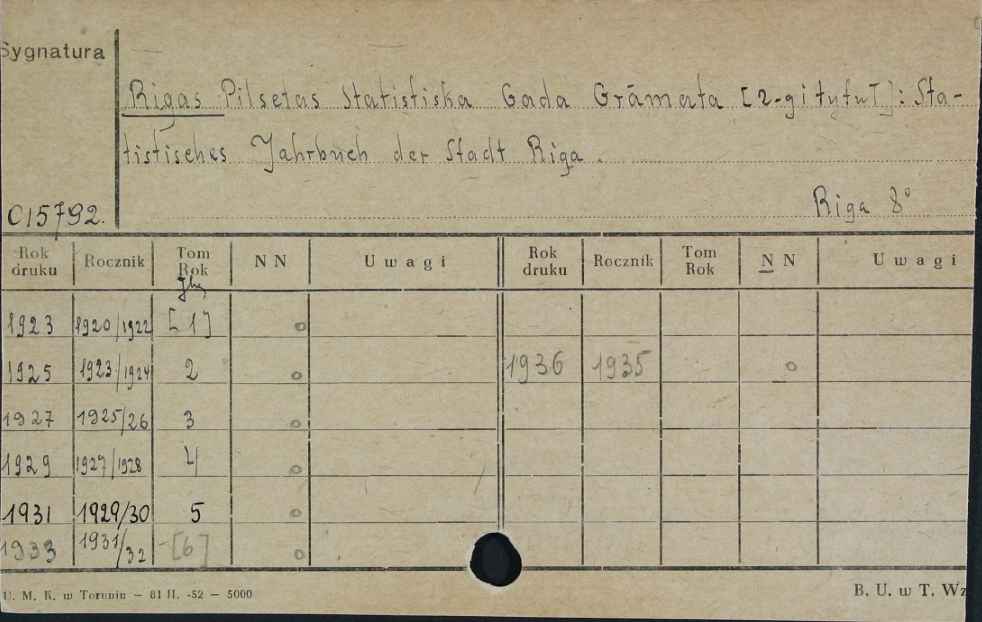 Sygnatura
Rigas Pilsetas Statistiska Gada Grāmata [2-gi tytuł]: Sta-
tistisches Jahrbuch der Stadt Riga.
Riga 8°
C15792.
Rok druku Rocznik Tom Rok N N Uwagi Rok druku Rocznik Tom Rok N N Uwagi
1923 1920/1922 [1] o
1925 1923/1924 2 o 1936 1935 o
1927 1925/26 3 o
1929 1927/1928 4 o
1931 1929/30 5 o
1933 1931/32 [6] o
U. M. K. w Toruniu – 81 II. -52 – 5000 B. U. w T. Wz